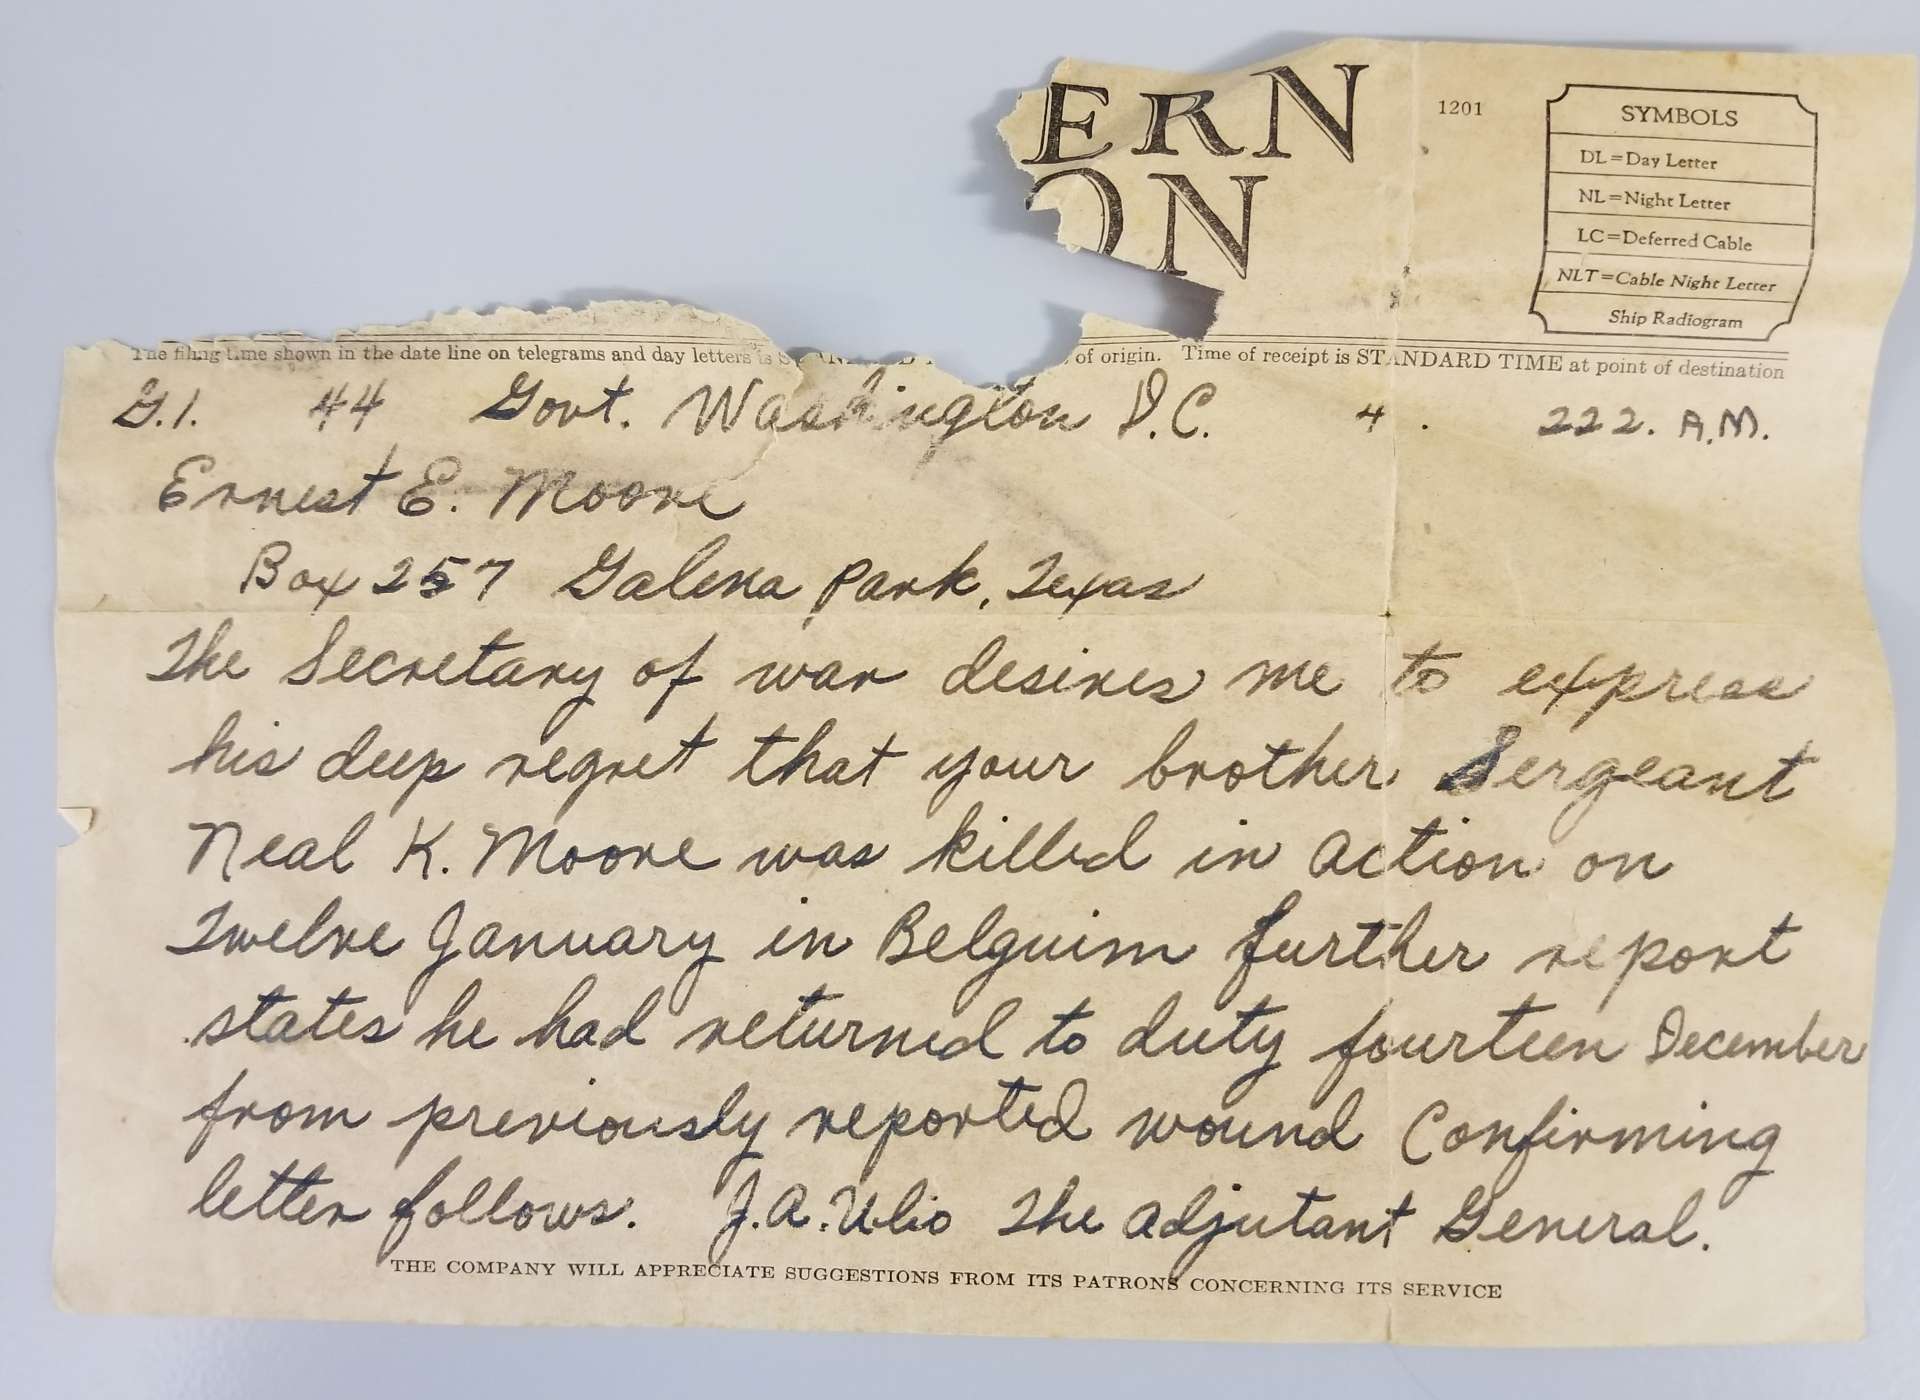 ERN
ON
1201
SYMBOLS
DL=Day Letter
NL=Night Letter
LC=Deferred Cable
NLT=Cable Night Letter
Ship Radiogram
The filing time shown in the date line on telegrams and day letters is STANDARD of origin. Time of receipt is STANDARD TIME at point of destination
G.1. 44 Govt. Washington D.C. 4. 222. A.M.
Ernest E. Moore
Box 257 Galena Park, Texas
The Secretary of war desires me to express
his deep regret that your brother Sergeant
Neal K. Moore was killed in action on
Twelve January in Belguim further report
states he had returned to duty fourteen December
from previously reported wound Confirming
letter follows. J.A. Ulio The adjutant General.
THE COMPANY WILL APPRECIATE SUGGESTIONS FROM ITS PATRONS CONCERNING ITS SERVICE